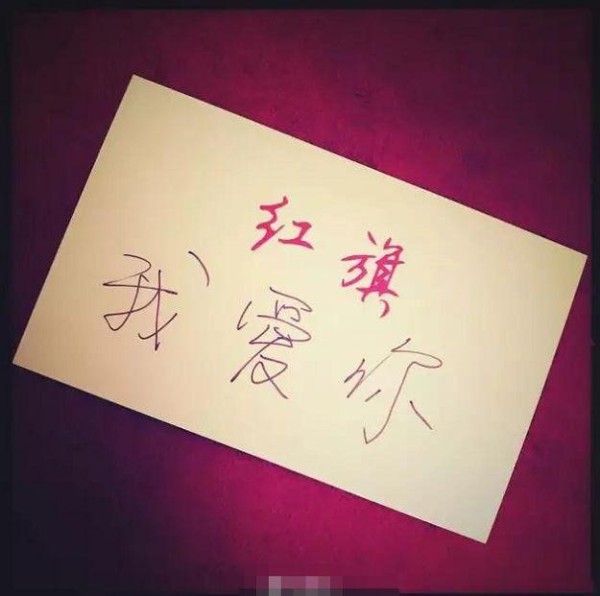 红旗
我愛你